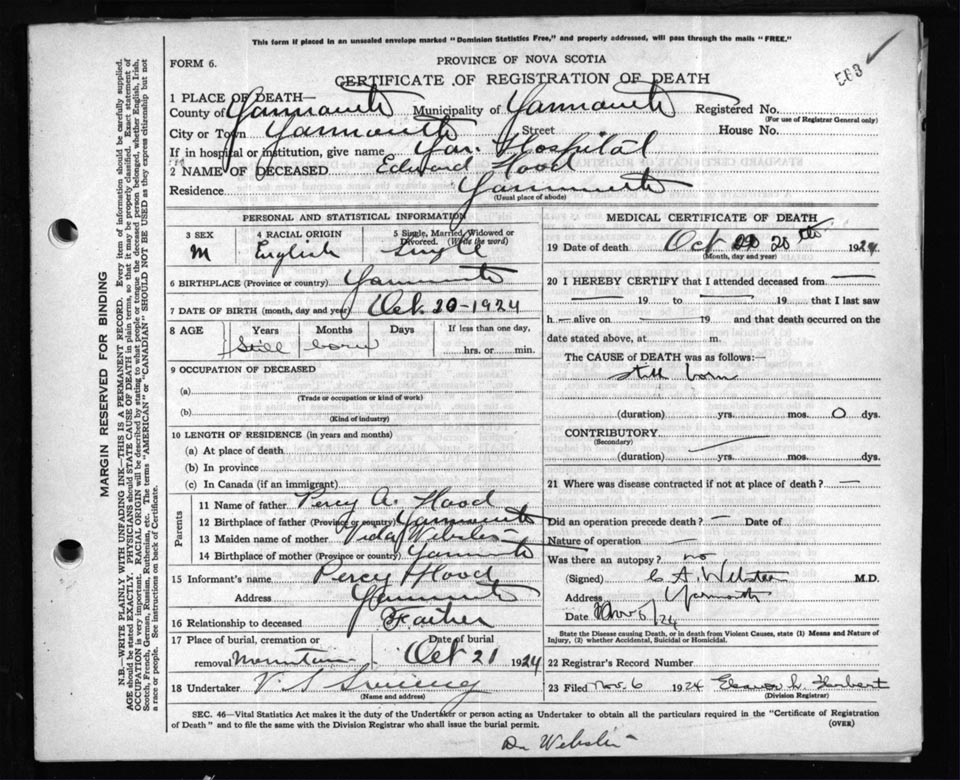 This form if placed in an unsealed envelope marked "Dominion Statistics Free," and properly addressed, will pass through the mails "FREE."
FORM 6.
PROVINCE OF NOVA SCOTIA
563
CERTIFICATE OF REGISTRATION OF DEATH
1 PLACE OF DEATH—
County of Yarmouth Municipality of Yarmouth Registered No.
(For use of Registrar General only)
City or Town Yarmouth Street House No.
If in hospital or institution, give name Yar. Hospital
2 NAME OF DECEASED Edward Hood
Residence Yarmouth
(Usual place of abode)
PERSONAL AND STATISTICAL INFORMATION
3 SEX 4 RACIAL ORIGIN 5 Single, Married, Widowed or Divorced. (Write the word)
M English Single
6 BIRTHPLACE (Province or country) Yarmouth
7 DATE OF BIRTH (month, day and year) Oct. 20-1924
8 AGE Years Months Days If less than one day,
Still born hrs. or min.
9 OCCUPATION OF DECEASED
(a)
(Trade or occupation or kind of work)
(b)
(Kind of industry)
10 LENGTH OF RESIDENCE (in years and months)
(a) At place of death
(b) In province
(c) In Canada (if an immigrant)
Parents
11 Name of father Percy A. Hood
12 Birthplace of father (Province or country) Yarmouth
13 Maiden name of mother Vida Webster
14 Birthplace of mother (Province or country) Yarmouth
15 Informant's name Percy Hood
Address Yarmouth
16 Relationship to deceased Father
17 Place of burial, cremation or Date of burial
removal Mountain Oct 21 1924
18 Undertaker V. S. Sweeney
(Name and address)
MEDICAL CERTIFICATE OF DEATH
19 Date of death Oct 20th 1924
(Month, day and year)
20 I HEREBY CERTIFY that I attended deceased from —
— 19 to — 19 that I last saw
h — alive on — 19 and that death occurred on the
date stated above, at m.
The CAUSE of DEATH was as follows:—
still born
(duration) yrs. mos. 0 dys.
CONTRIBUTORY
(Secondary)
(duration) yrs. mos. dys.
21 Where was disease contracted if not at place of death? —
Did an operation precede death? — Date of
Nature of operation —
Was there an autopsy? no
(Signed) C A. Webster M.D.
Address Yarmouth
Date Nov 5/24
State the Disease causing Death, or in death from Violent Causes, state (1) Means and Nature of
Injury, (2) whether Accidental, Suicidal or Homicidal.
22 Registrar's Record Number
23 Filed Nov. 6 1924 Eleanor L.
(Division Registrar)
SEC. 46—Vital Statistics Act makes it the duty of the Undertaker or person acting as Undertaker to obtain all the particulars required in the "Certificate of Registration
of Death" and to file the same with the Division Registrar who shall issue the burial permit. (OVER)
Dr Webster
MARGIN RESERVED FOR BINDING
N.B.—WRITE PLAINLY WITH UNFADING INK—THIS IS A PERMANENT RECORD. Every item of information should be carefully supplied.
AGE should be stated EXACTLY. PHYSICIANS should STATE CAUSE OF DEATH in plain terms, so that it may be properly classified. Exact statement of
OCCUPATION is very important. RACIAL ORIGIN will be described by stating to what people or tongue the deceased person belonged, whether English, Irish,
Scotch, French, German, Russian, Ruthenian, etc. The terms "AMERICAN" or "CANADIAN" SHOULD NOT BE USED as they express citizenship but not
a race or people. See instructions on back of Certificate.